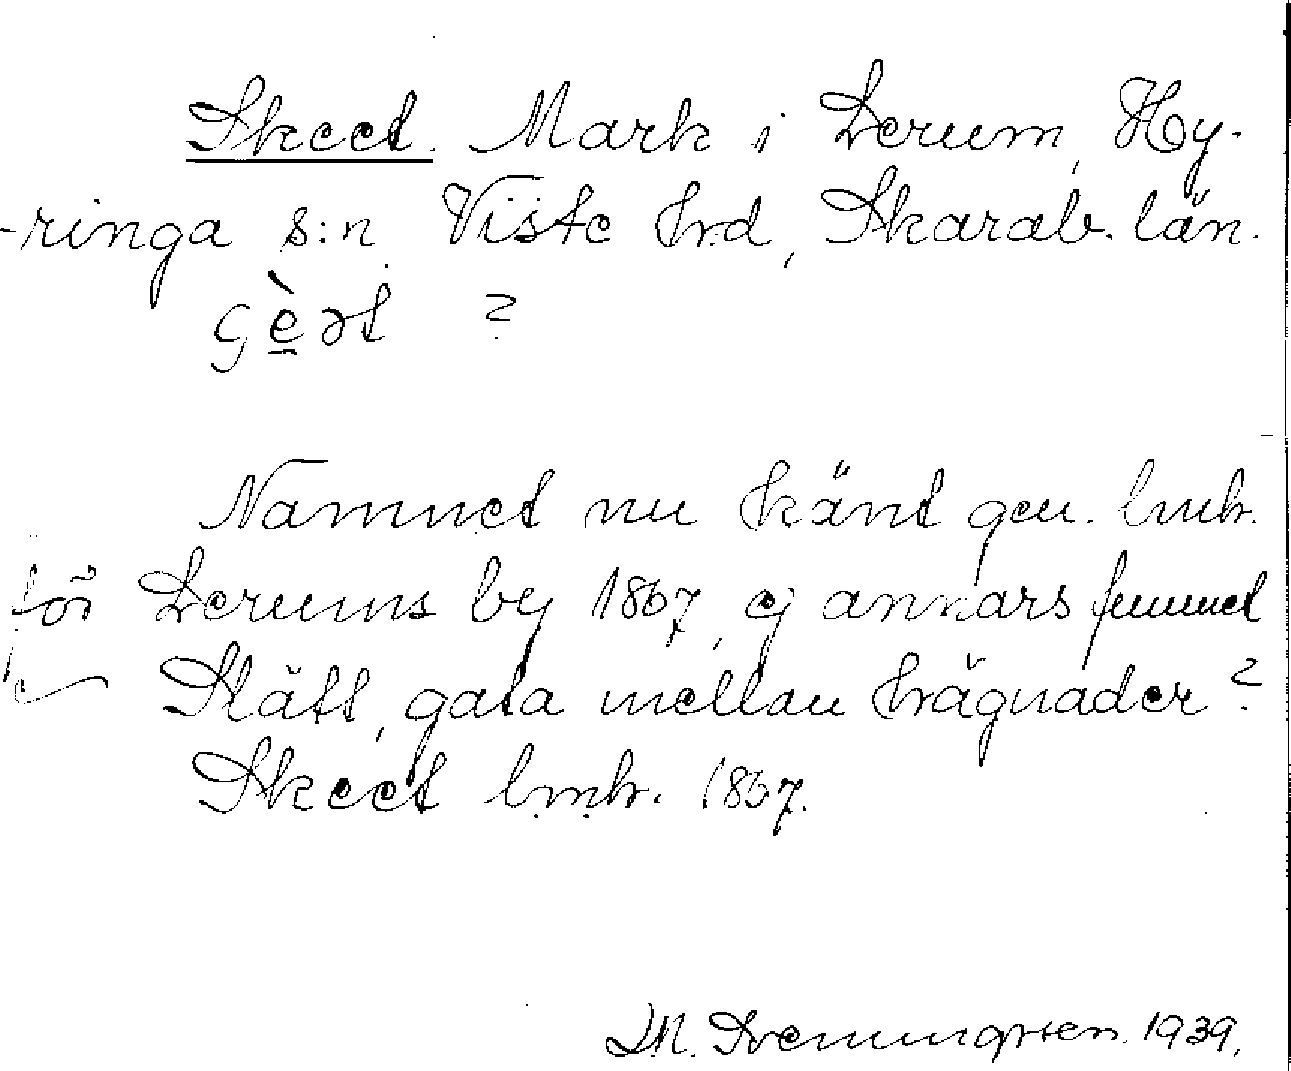 Skeet. Mark i Lerum, Hy-
-ringa s:n Viste hrd, Skarab. län.
gèət ?
Namnet nu känt gen. lmh.
för Lerums by 1867, ej annars funnet
Slätt, gata mellan hägnader?
Skeet lmh. 1867.
1939.